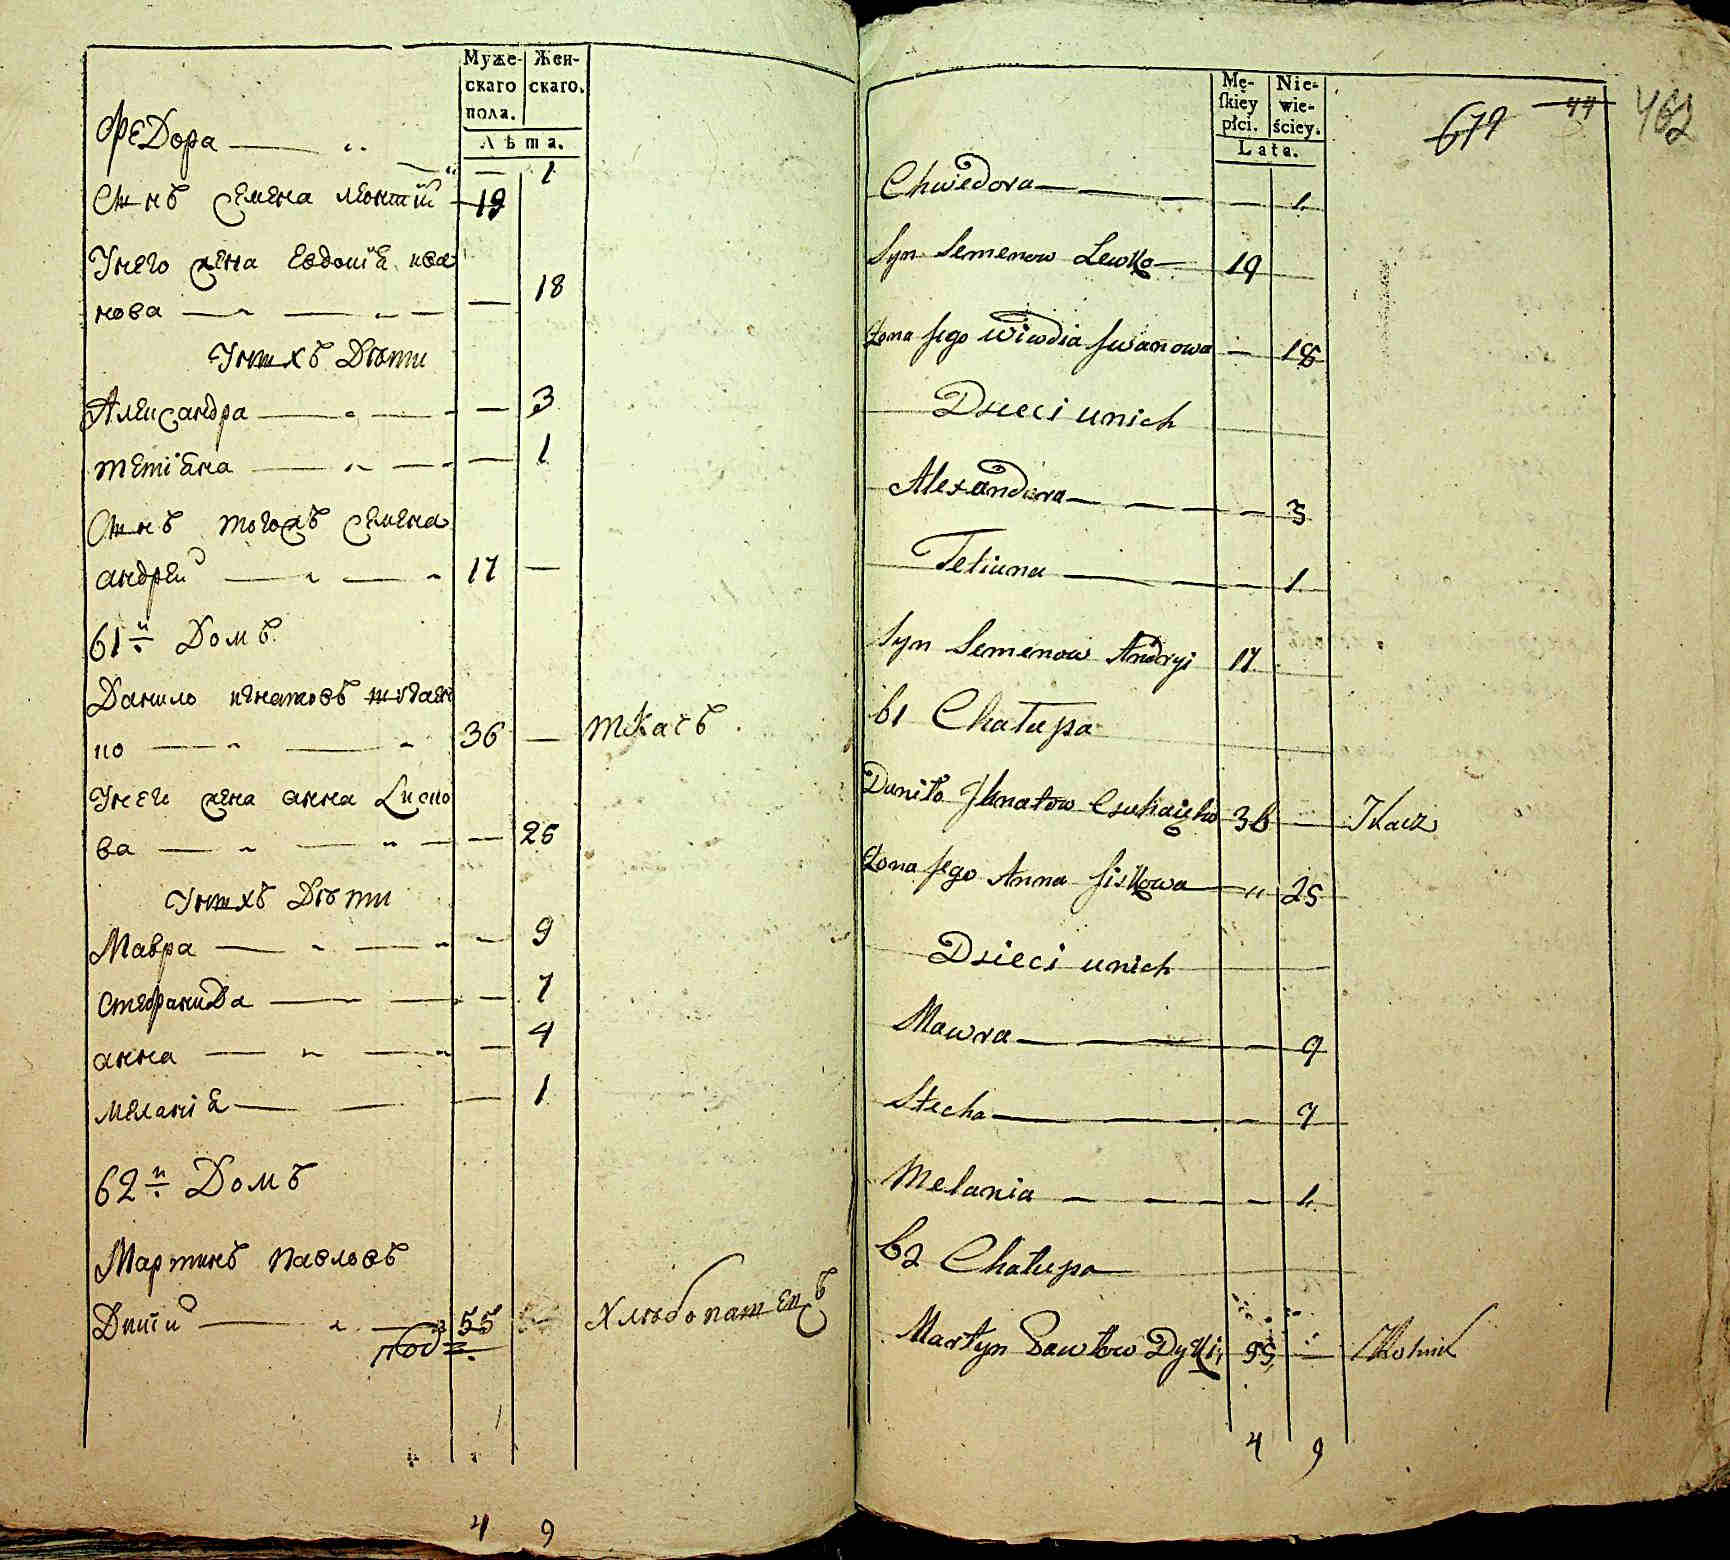 Муже-
скаго
пола.
Жен-
скаго.
Лѣта.
Федора — 1
Сынъ Семена Леонтій 19
У него жена Евдокія ива
нова — 18
У нихъ Дѣти
Александра — 3
Тетіана — 1
Сынъ тогожъ Семена
андрей 17 —
61й Домъ
Данило игнатовъ
ко 36 — ткачъ
У него жена анна
ва — 25
У нихъ Дѣти
Мавра — 9
Стефанида — 7
анна — 4
меланія — 1
62й Домъ
Мартинъ павловъ
Дикій 55 Хлѣбопашецъ
4 9
679 44 462
Mę-
skiey
płci.
Nie-
wie-
ściey.
Lata.
Chwedora — 1
Syn Semenow Lewko 19
Żona Jego Wiwdia Jwanowa — 18
Dzieci unich
Alexandera — 3
Tetiana — 1
Syn Semenow Andryi 17
61 Chałupa
Daniło Jhnatow 36 — Tkacz
Żona Jego Anna Siskowa " 25
Dzieci unich
Mawra — 9
Stecha — 7
Melania — 1
62 Chałupa
Martyn Pawłow Dykiy 55 — Rolnik
4 9